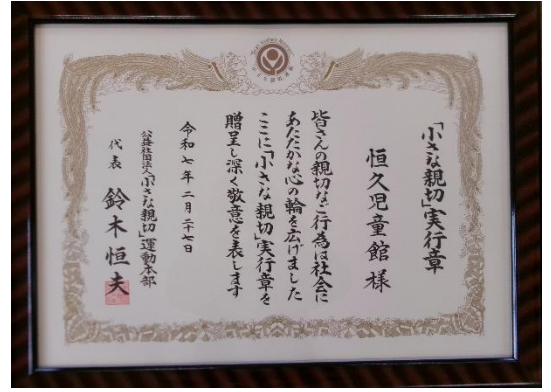 「小さな親切」実行章
恒久児童館 様
皆さんの親切なご行為は社会に
あたたかな心の輪を広げました
ここに「小さな親切」実行章を
贈呈し深く敬意を表します
令和七年二月二十七日
公益社団法人「小さな親切」運動本部
代表 鈴木恒夫